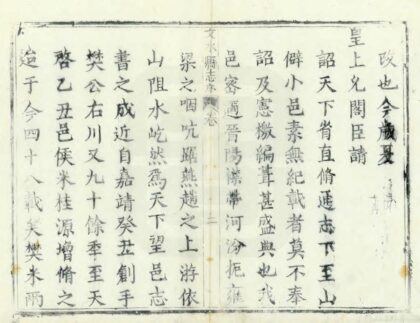 改也今歲夏
皇上允閣臣請
詔天下省直脩通志下至山
僻小邑素無紀載者莫不奉
詔及憲檄編葺甚盛典也我
邑密邇晉陽襟帶河汾扼雍
文水縣志序卷 二
梁之咽吭踞燕趙之上游依
山阻水屹然爲天下望邑志
書之成近自嘉靖癸丑創手
樊公右川又九十餘季至天
啓乙丑邑侯米桂源增脩之
迨于今四十八載矣樊米兩